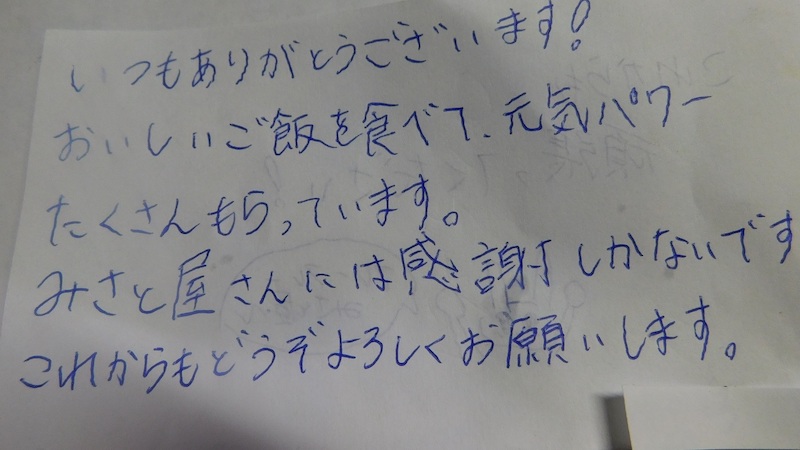 いつもありがとうございます!
おいしいご飯を食べて、元気パワー
たくさんもらっています。
みさと屋さんには感謝しかないです
これからもどうぞよろしくお願いします。